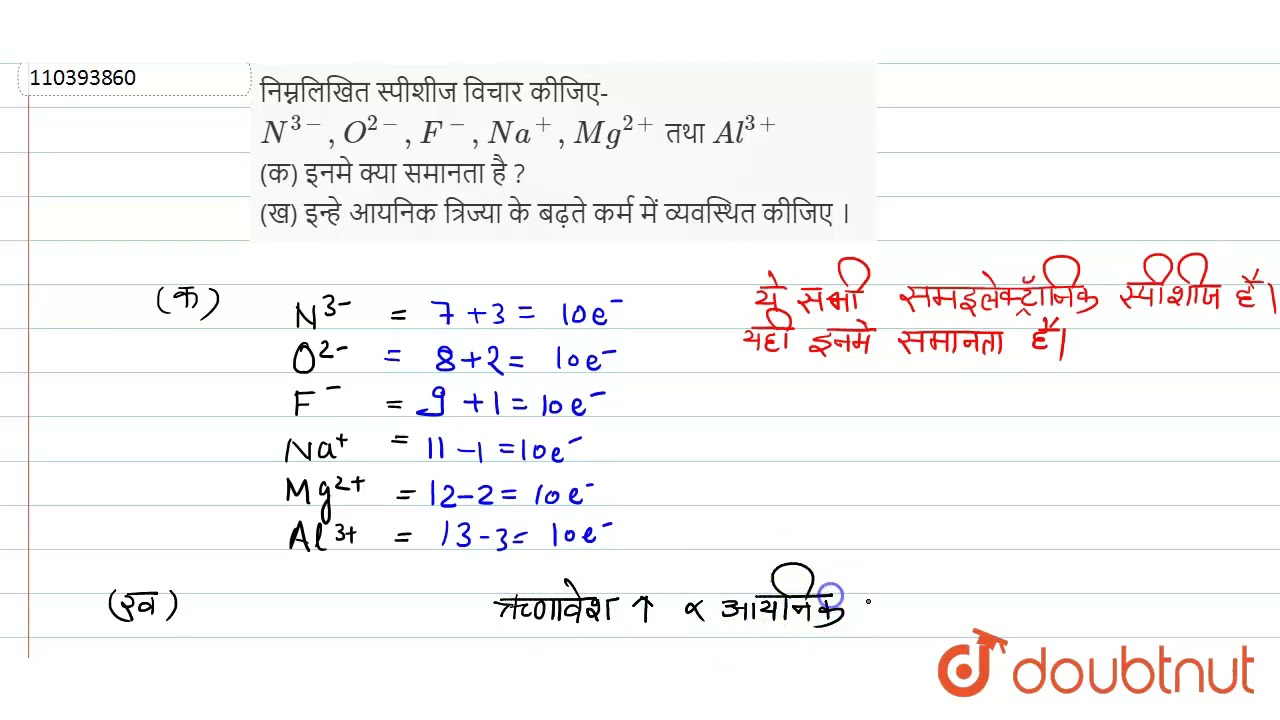 110393860
निम्नलिखित स्पीशीज विचार कीजिए-
N³⁻, O²⁻, F⁻, Na⁺, Mg²⁺ तथा Al³⁺
(क) इनमे क्या समानता है ?
(ख) इन्हे आयनिक त्रिज्या के बढ़ते कर्म में व्यवस्थित कीजिए ।
(क)
N³⁻ = 7 + 3 = 10e⁻
O²⁻ = 8 + 2 = 10e⁻
F⁻ = 9 + 1 = 10e⁻
Na⁺ = 11 - 1 = 10e⁻
Mg²⁺ = 12 - 2 = 10e⁻
Al³⁺ = 13 - 3 = 10e⁻
ये सभी समइलेक्ट्रॉनिक स्पीशीज है।
यही इनमे समानता है।
(ख) ऋणावेश ↑ ∝ आयनिक
doubtnut